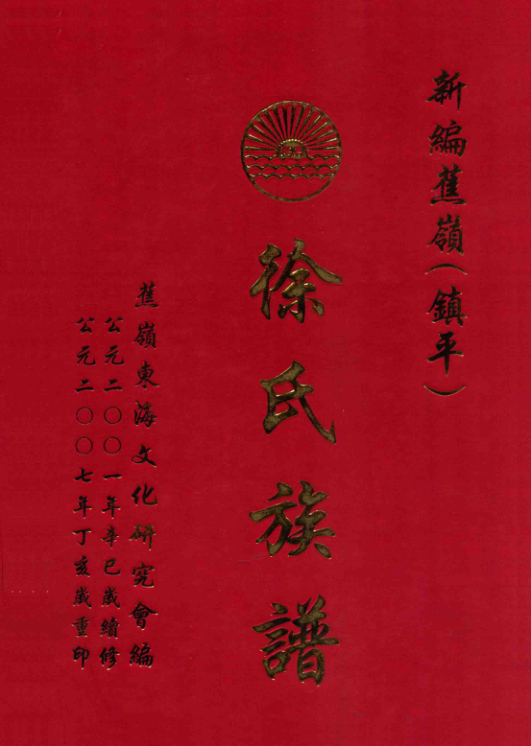 新編蕉嶺（鎮平）
徐氏族譜
蕉嶺東海文化研究會編
公元二〇〇一年辛巳歲續修
公元二〇〇七年丁亥歲重印